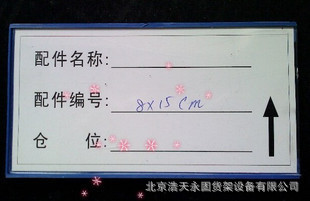 配件名称:
配件编号: 8×15cm
仓 位:
北京浩天永固货架设备有限公司